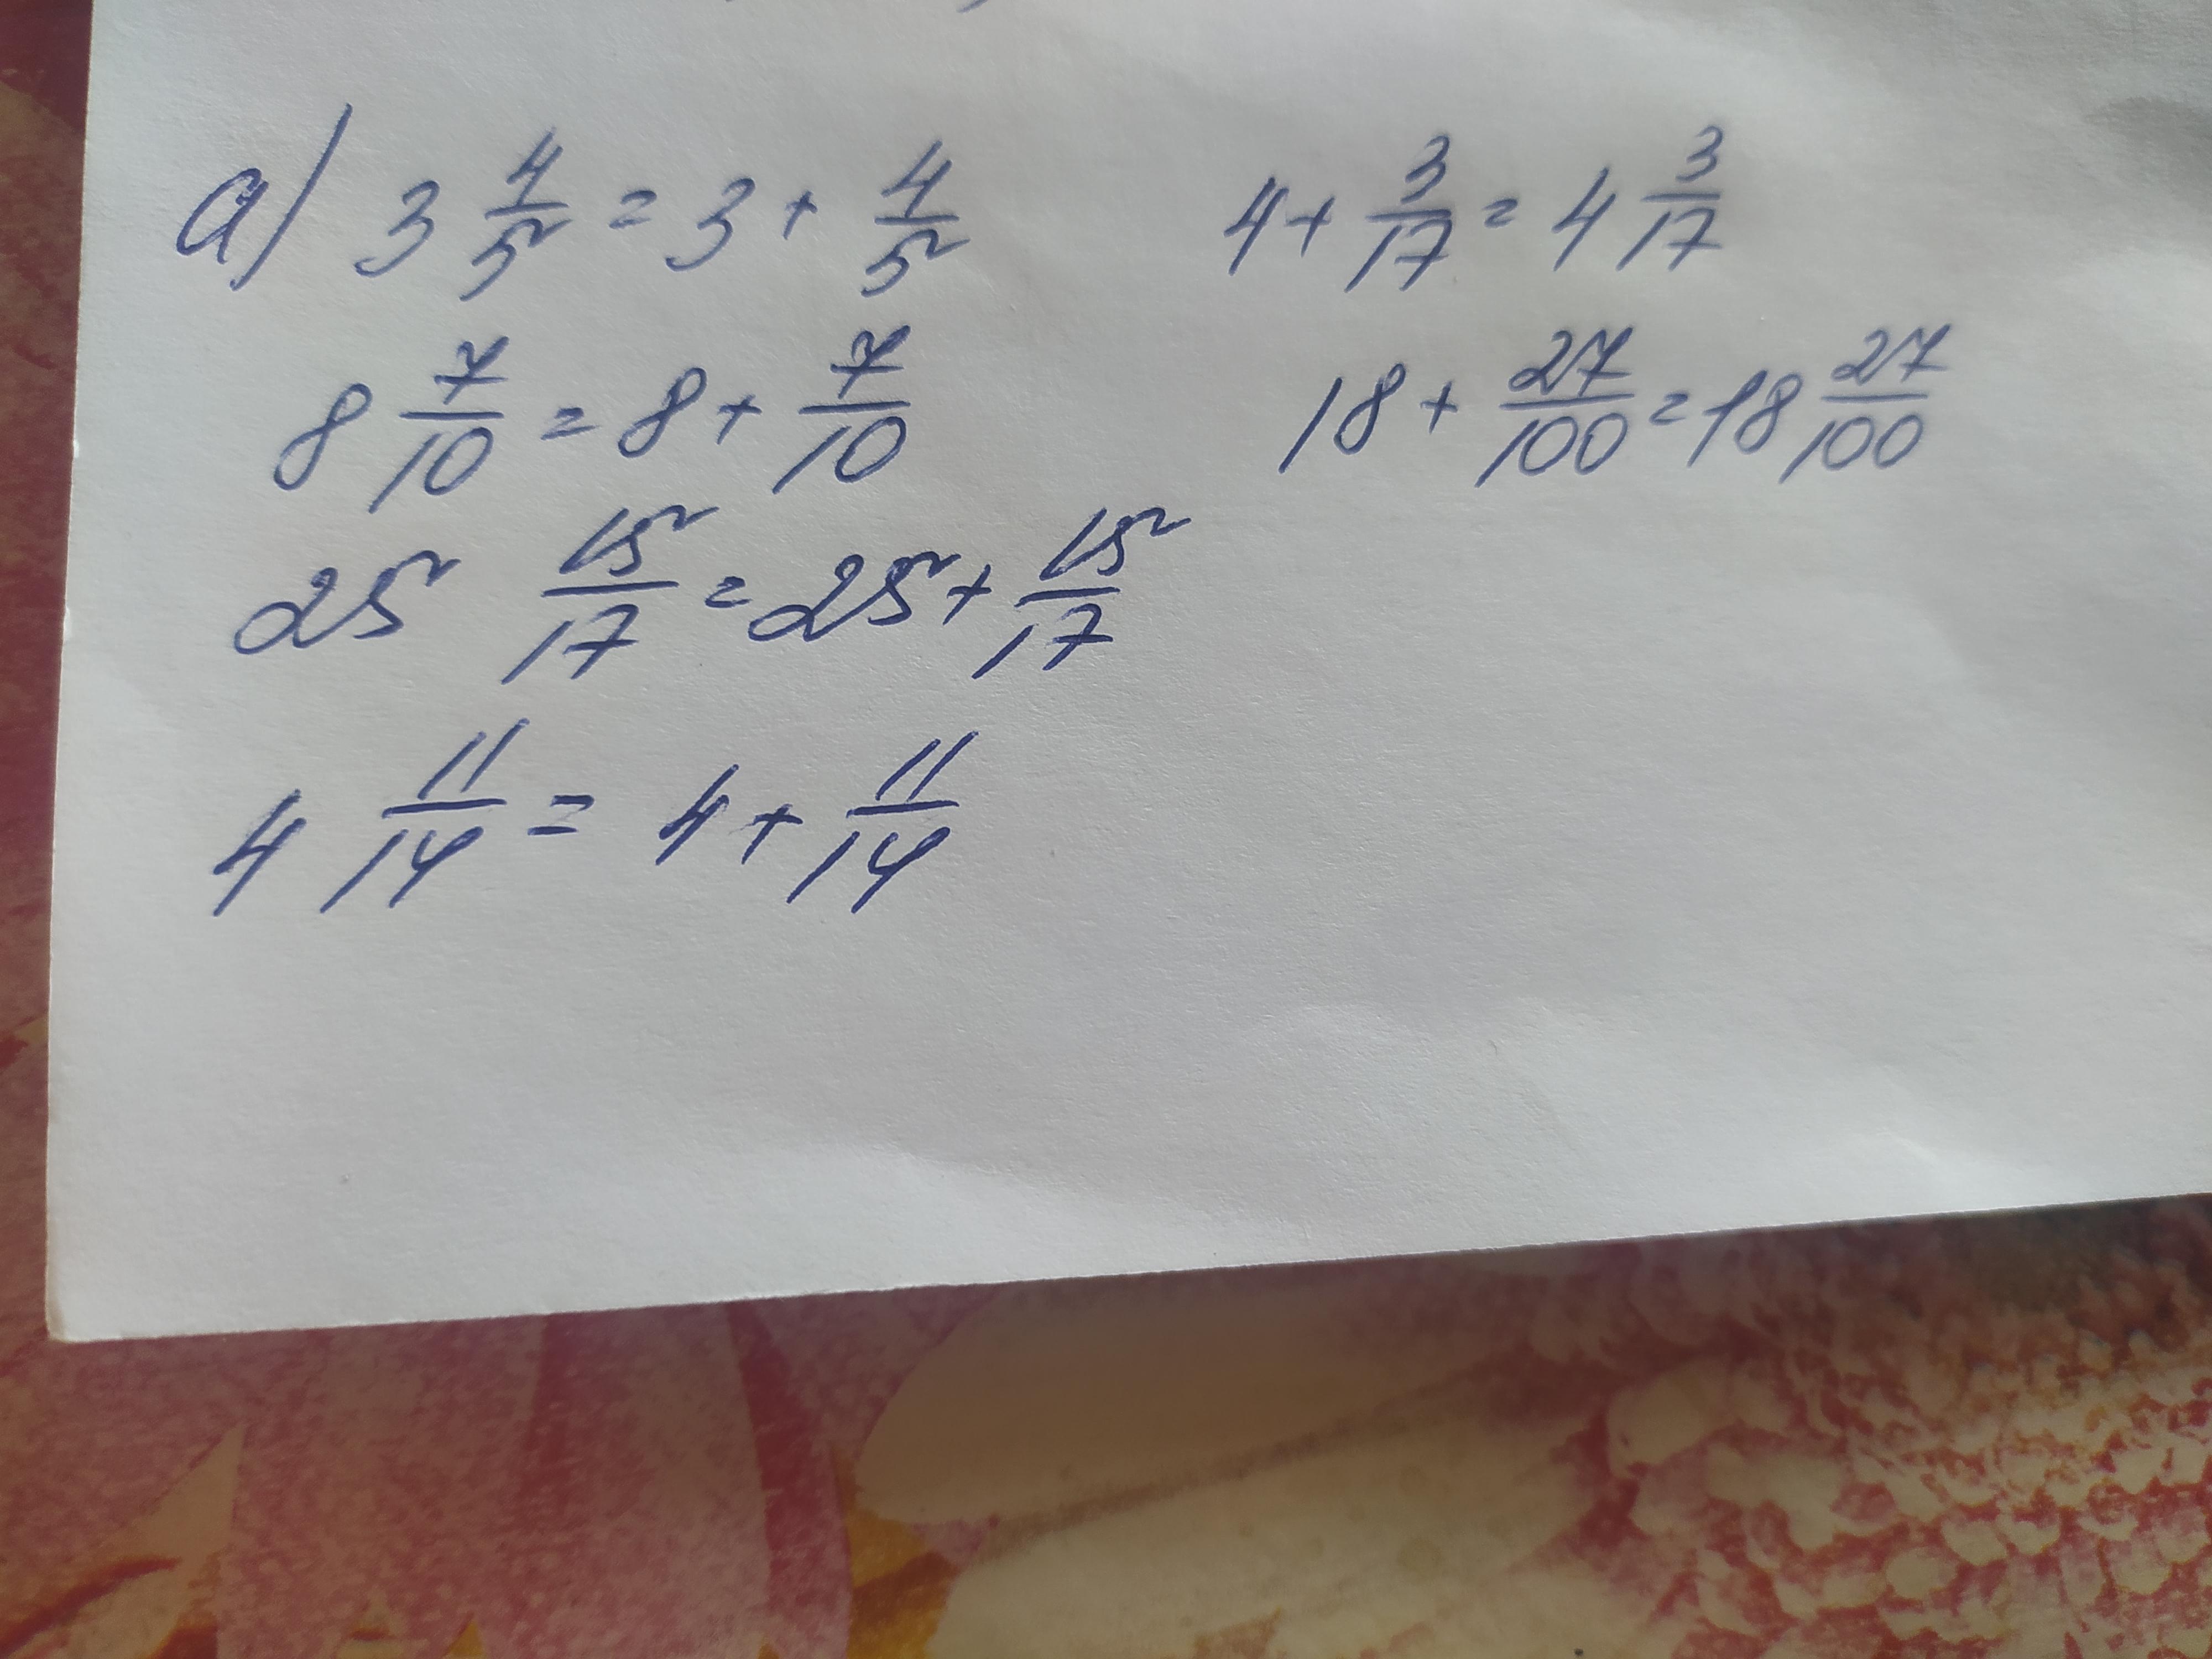 а) 3 4/5 = 3 + 4/5
4 + 3/17 = 4 3/17
8 7/10 = 8 + 7/10
18 + 27/100 = 18 27/100
25 15/17 = 25 + 15/17
4 11/14 = 4 + 11/14